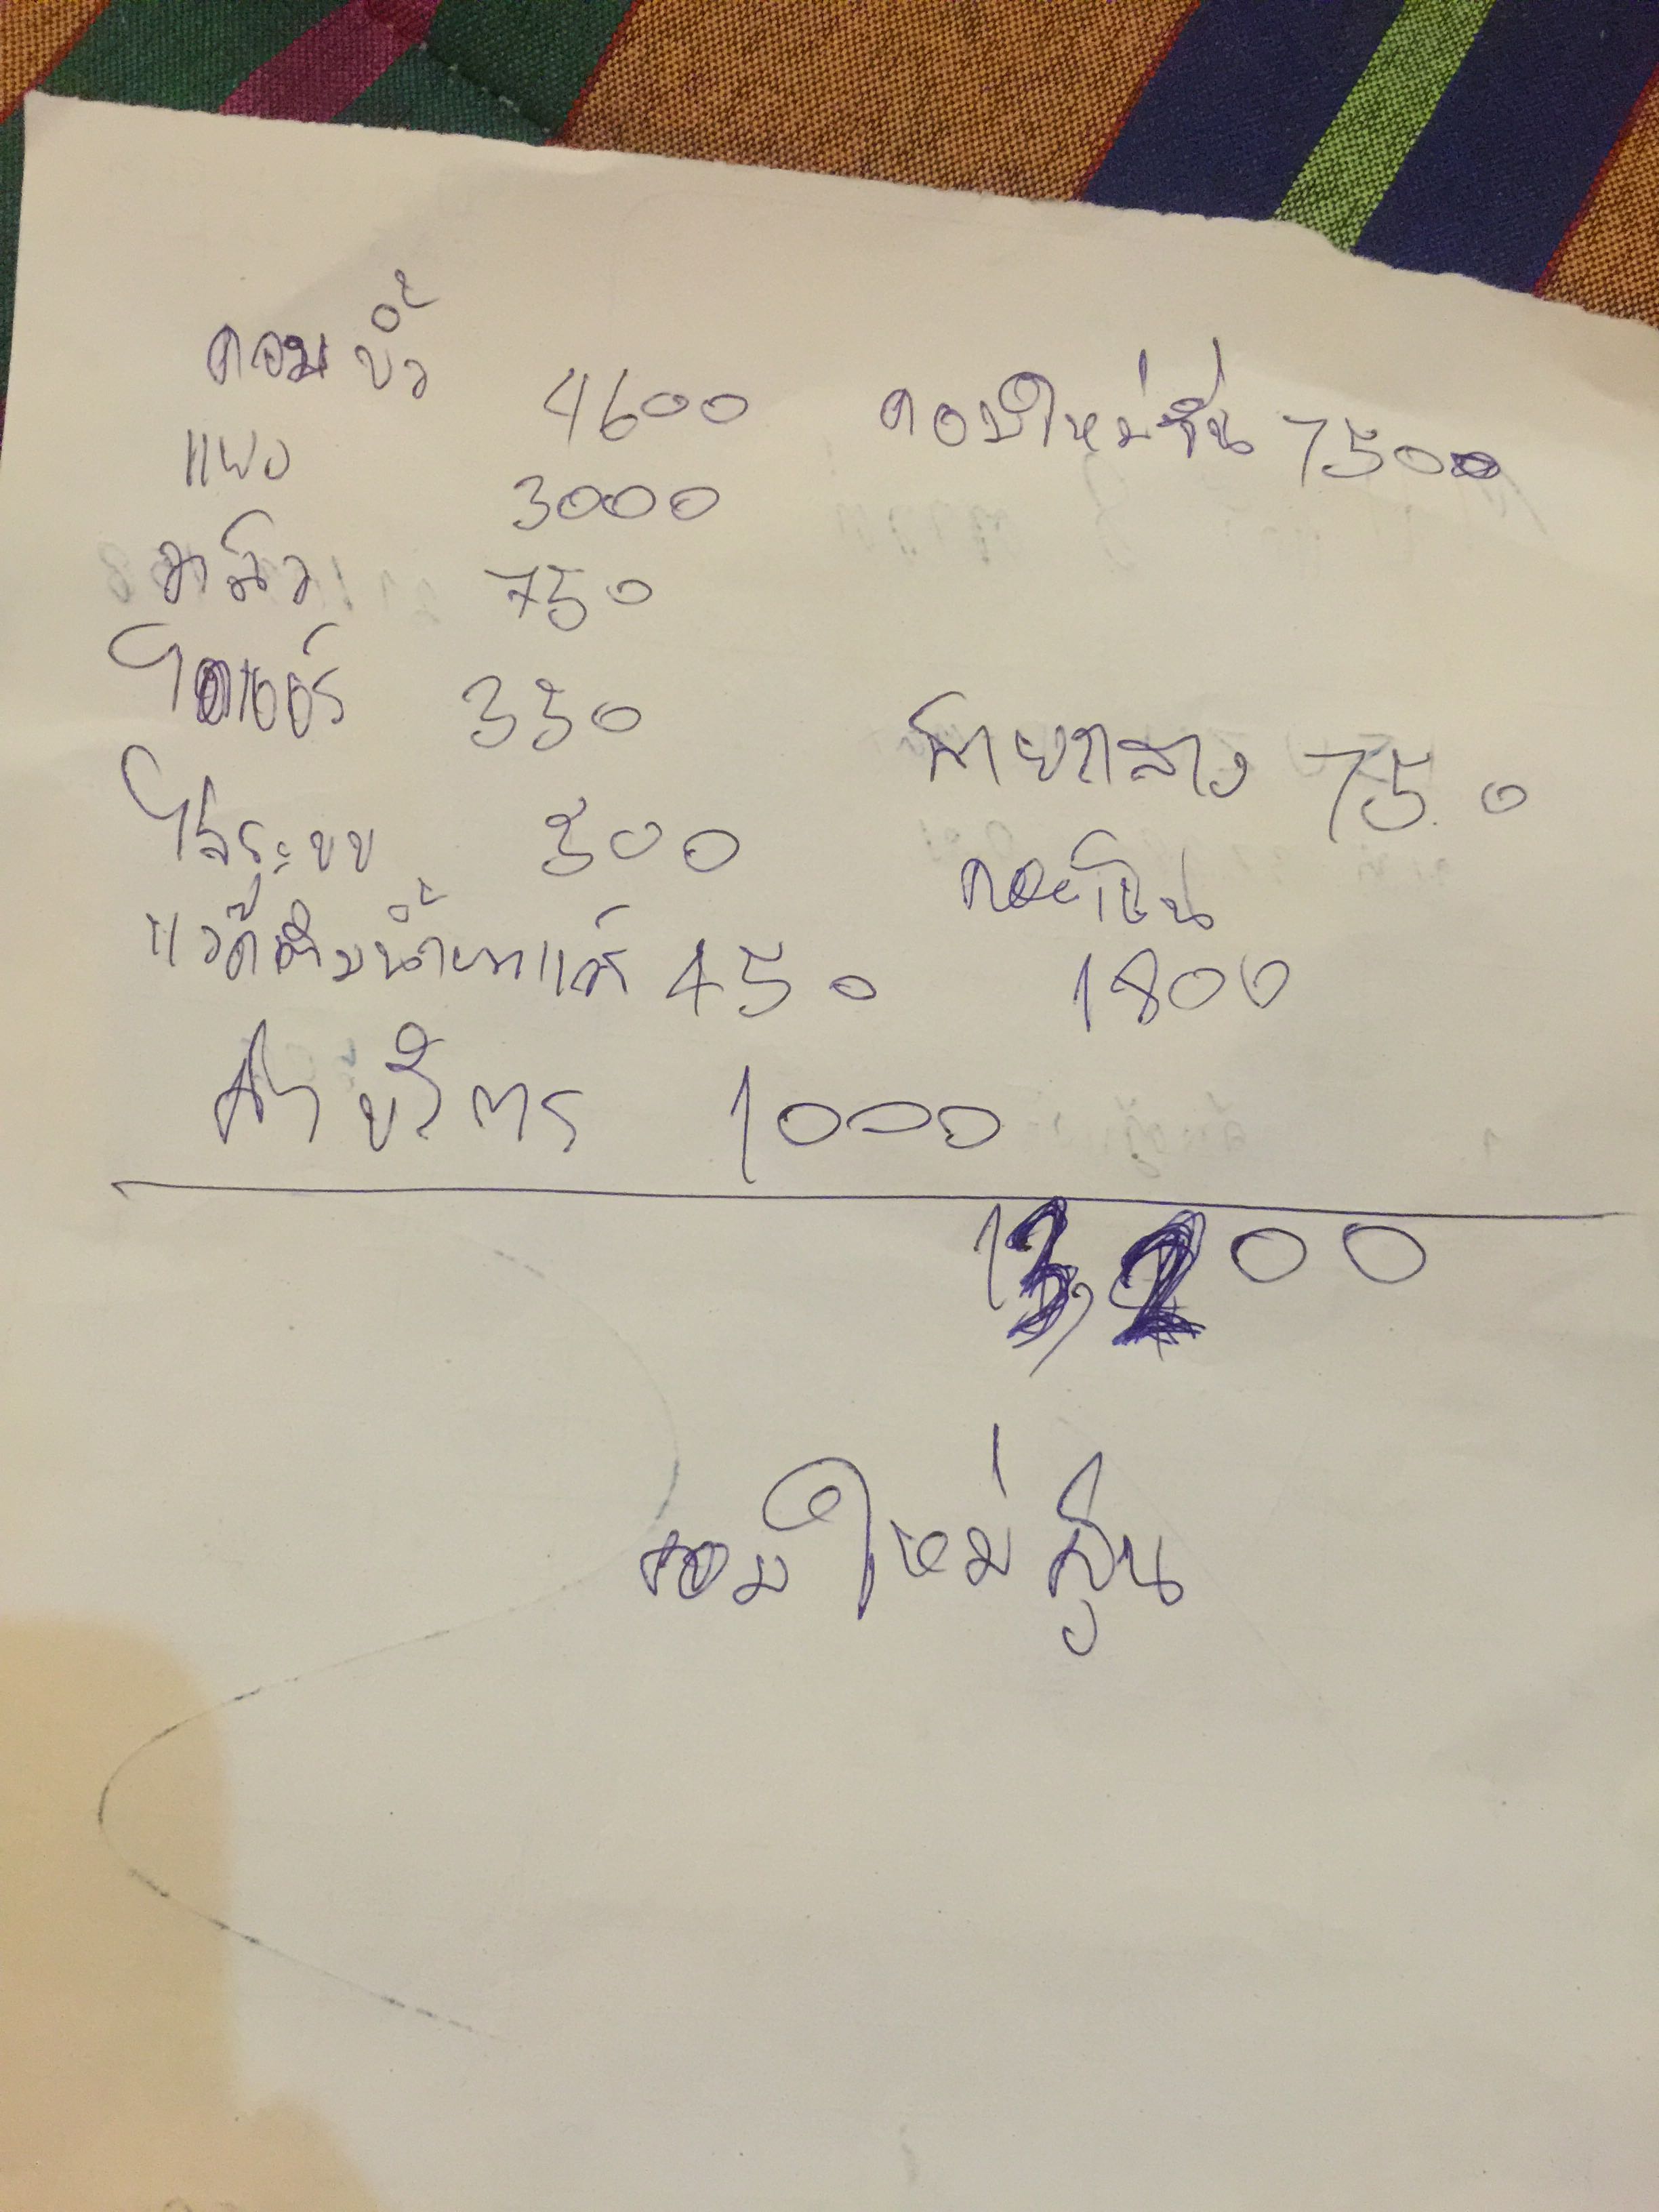 คอมบิ้ว 4600 คอมใหม่จีน 7500
แผง 3000
วาล์ว 750
ไดเออร์ 350
สายกลาง 750
ไล่ระบบ 500
คอยโยน
แวคเติมน้ำยาแอร์ 450 1800
ค่าบริการ 1000
13,200
คอมใหม่จีน